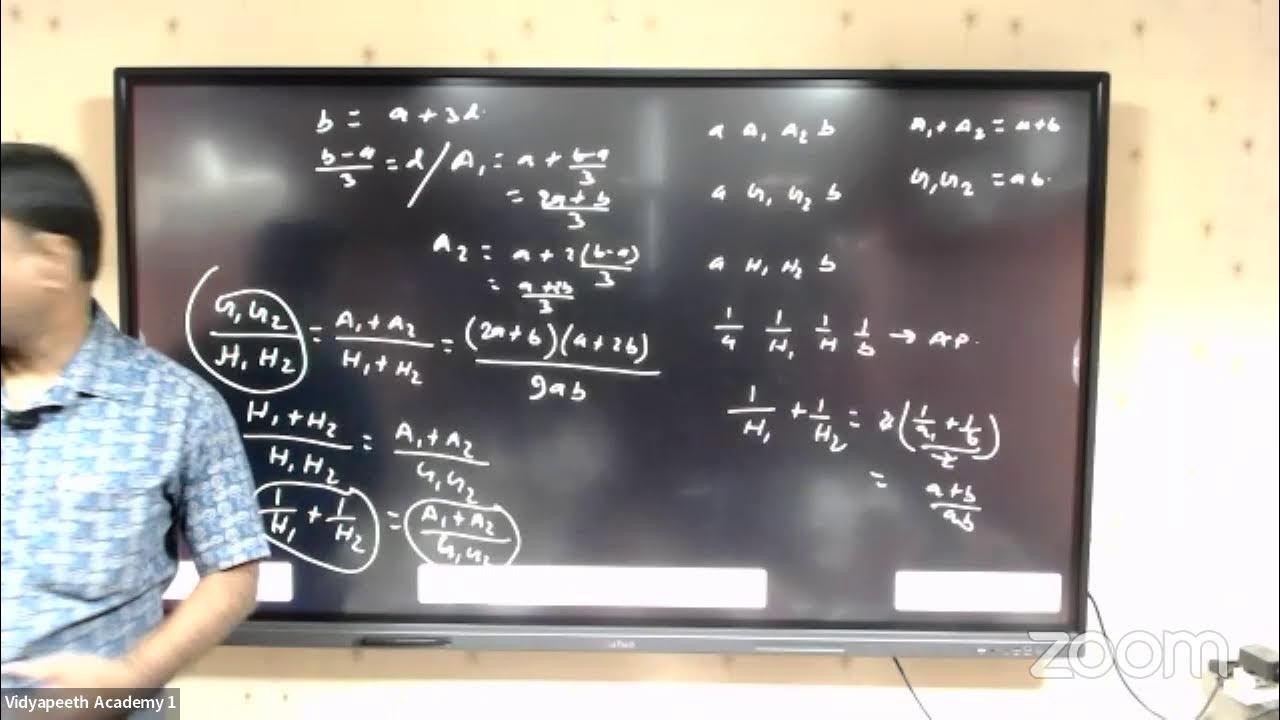 b = a + 3d
b-a/3 = d / A₁ = a + b-a/3
= 2a+b/3
A₂ = a + 2(b-a)/3
= a+2b/3
G₁G₂/H₁H₂ = A₁+A₂/H₁+H₂ = (2a+b)(a+2b)/9ab
H₁+H₂/H₁H₂ = A₁+A₂/G₁G₂
1/H₁ + 1/H₂ = A₁+A₂/G₁G₂
a A₁ A₂ b
A₁+A₂ = a+b
a G₁ G₂ b
G₁G₂ = ab.
a H₁ H₂ b
1/a 1/H₁ 1/H 1/b → AP.
1/H₁ + 1/H₂ = 2(1/a + 1/b/2)
= a+b/ab
zoom
Vidyapeeth Academy 1